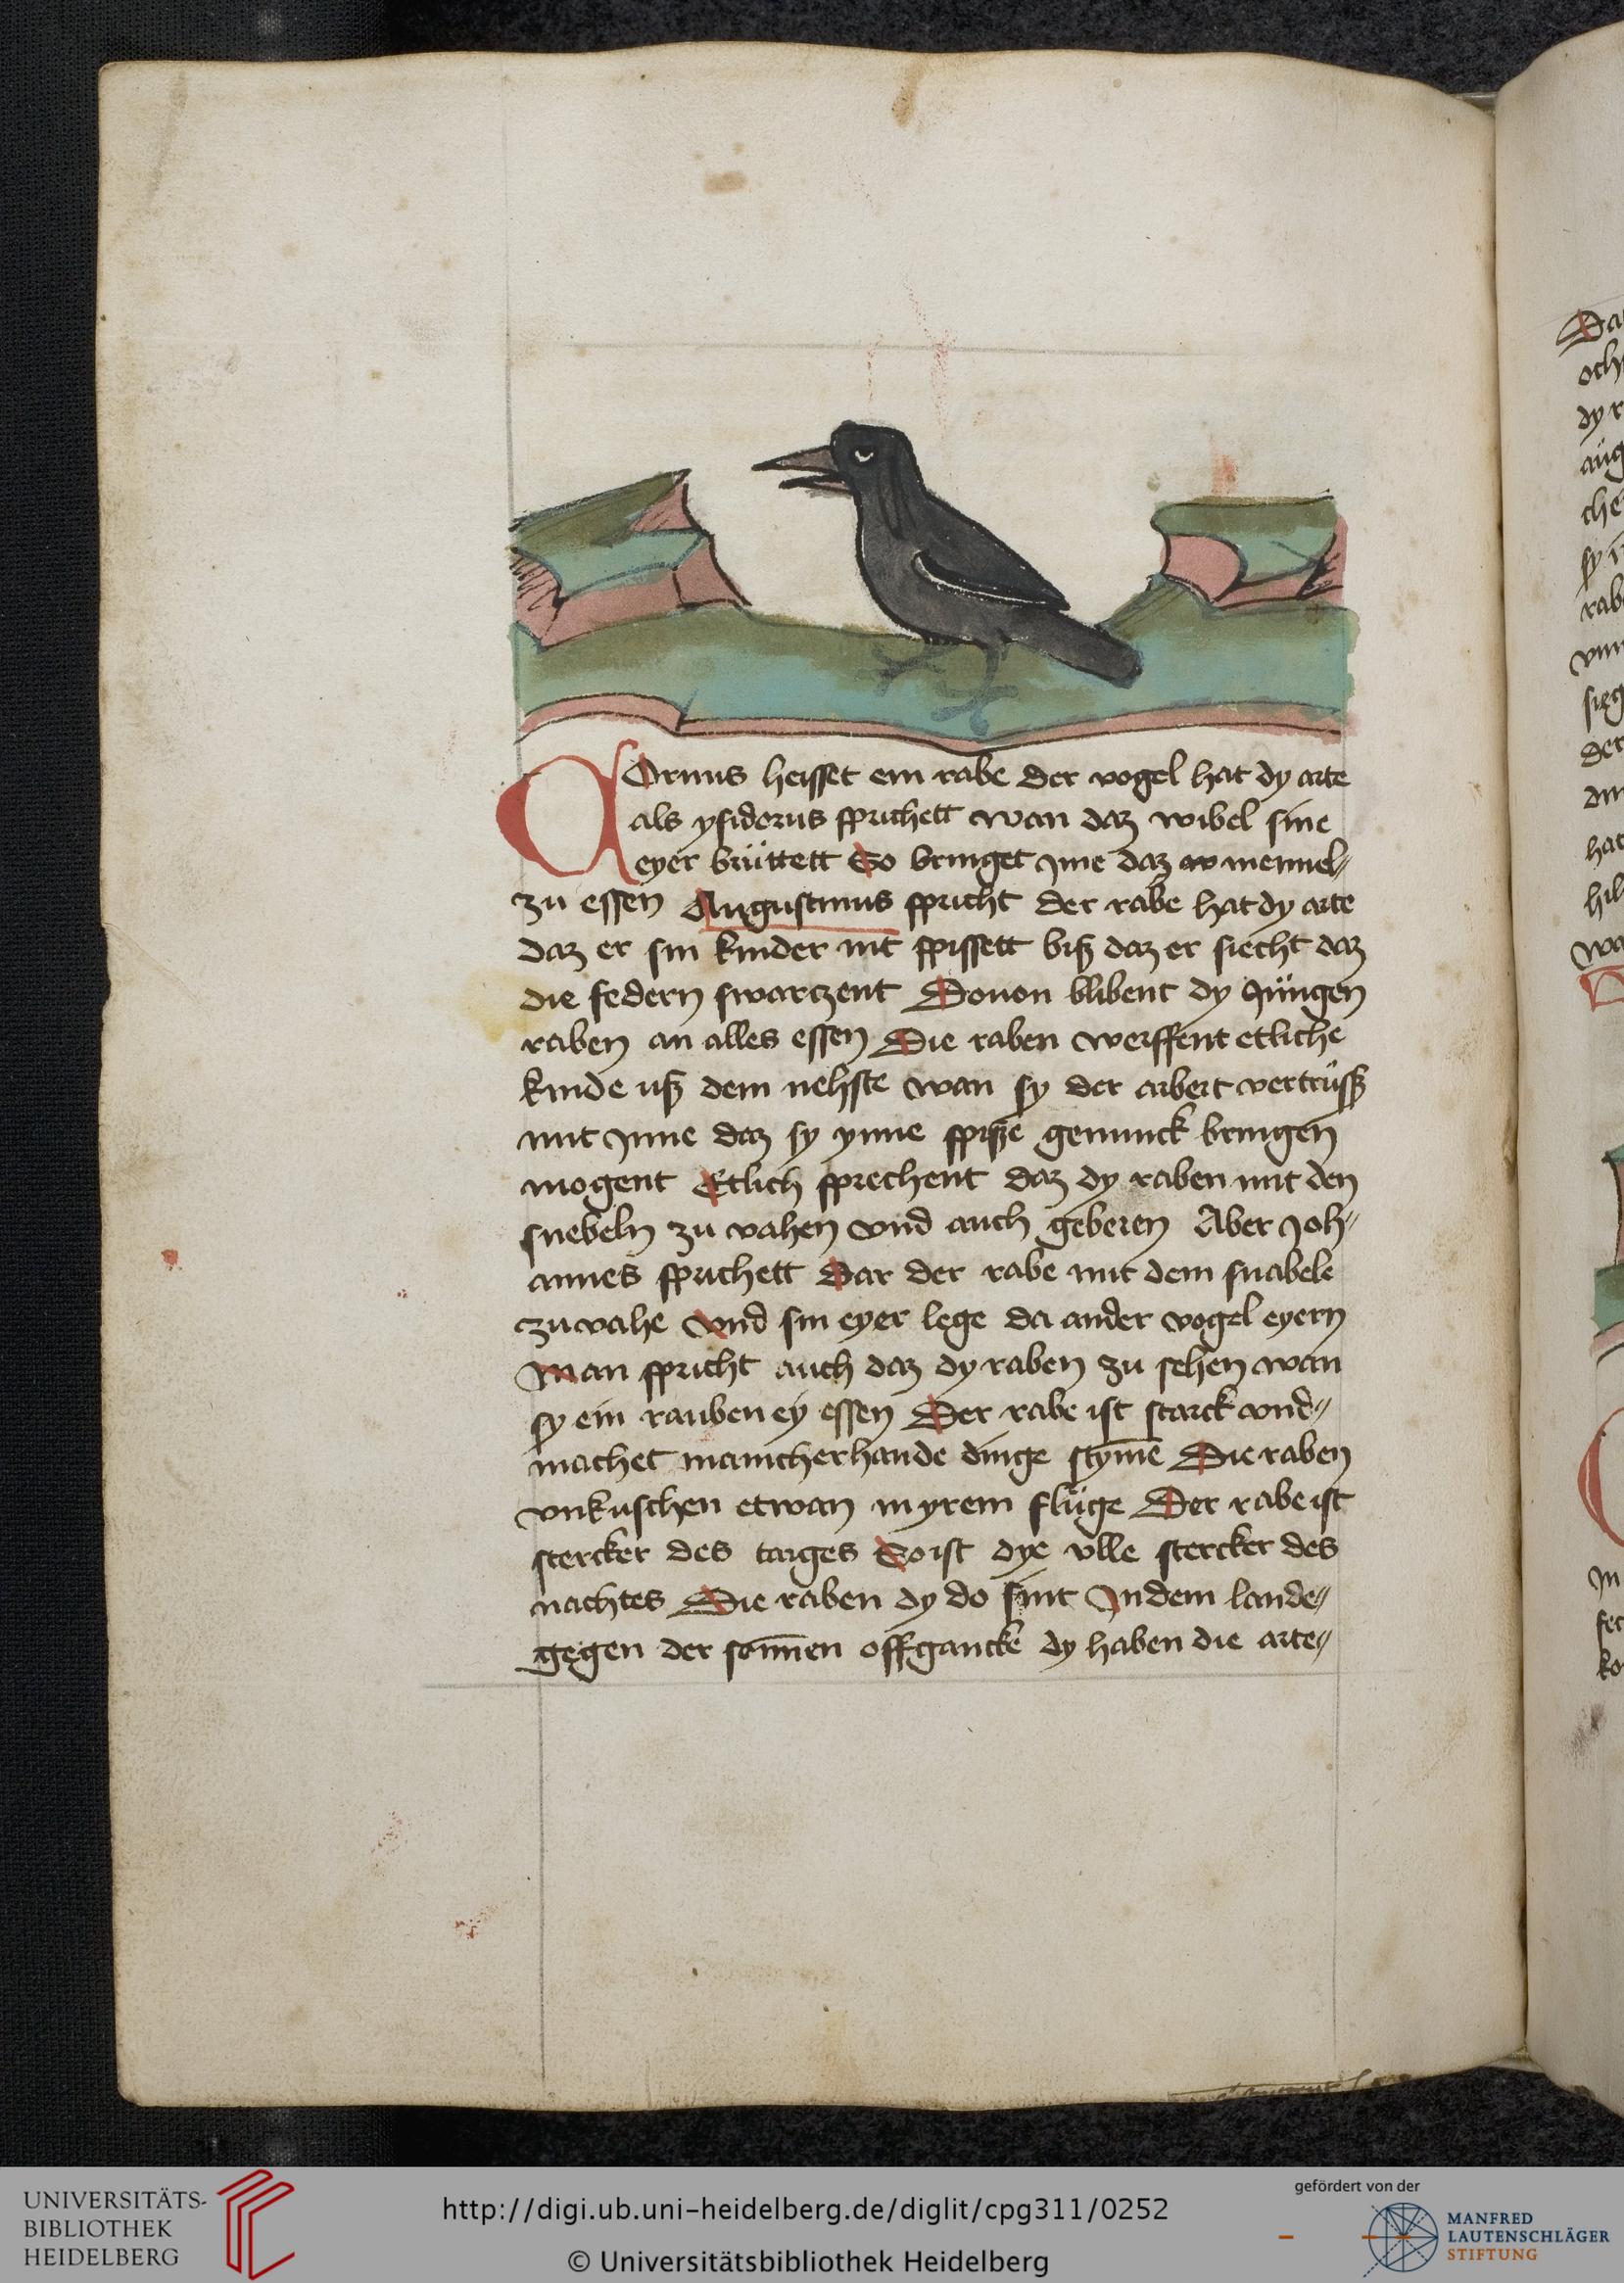 COruus heisset ein rabe der vogel hat dy arte
als ysidorus sprichett wan daz wibel sine
eyer brüttett So bringet Jme daz mennel〃
zu essen Augustinus spricht der rabe hat dy arte
daz er sin kinder nit spissett biß daz er siecht daz
die federn swarczent Douon blibent dy Jüngen
raben an alles essen Die raben werffent etliche
kinde uß dem nehste wan sy der arbeit vertrüsß
mit Jnne daz sy ynne spisze genunck bringen
mogent Etlich sprechent daz dy raben mit den
snebeln zu vahen vnd auch geberen Aber Joh〃
annes sprichett Dar der rabe mit dem snabele
zu vahe Vnd sin eyer lege da ander vogel eyern
Man spricht auch daz dy raben zu sehen wan
sy ein rauben ey essen Der rabe ist starck vnd〃
machet manicherhande dinge stÿme Die raben
vnkuschen etwan in yrem flüge Der rabe ist
stercker des tages So ist dye vlle stercker des
nachtes Die raben dy do sint Jn dem lande〃
gegen der sonnen offgancke dy haben die arte〃
och
dy r
che
rab
der
hat
wa
UNIVERSITÄTS-
BIBLIOTHEK
HEIDELBERG
http://digi.ub.uni-heidelberg.de/diglit/cpg311/0252
© Universitätsbibliothek Heidelberg
gefördert von der
MANFRED
LAUTENSCHLÄGER
STIFTUNG